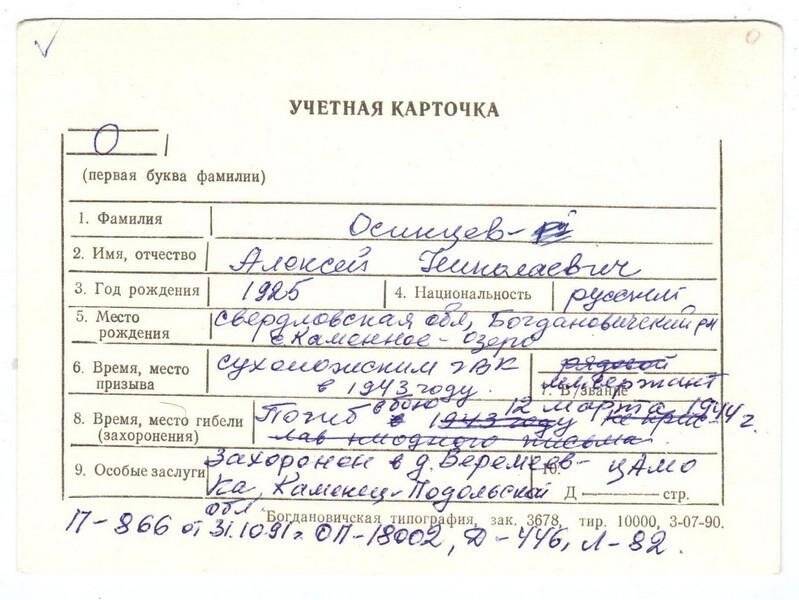 УЧЕТНАЯ КАРТОЧКА
О
(первая буква фамилии)
1. Фамилия Осинцев
2. Имя, отчество Алексей Николаевич
3. Год рождения 1925 4. Национальность русский
5. Место рождения Свердловская обл, Богдановичский рн
с Каменное-озеро
6. Время, место призыва Сухоложским гВК рядовой
в 1943 году. 7. В/звание мл сержант
8. Время, место гибели (захоронения) Погиб в бою 12 марта 1944 г.
в 1943 году не прис-
лав ниодного письма
9. Особые заслуги Захоронен в д. Веремеев- 10. ЦАМО
ка, Каменец-Подольской Д — стр.
обл.
Богдановичская типография, зак. 3678, тир. 10000, 3-07-90.
П-866 от 31.10.91г. ОП-18002, Д-446, Л-82.